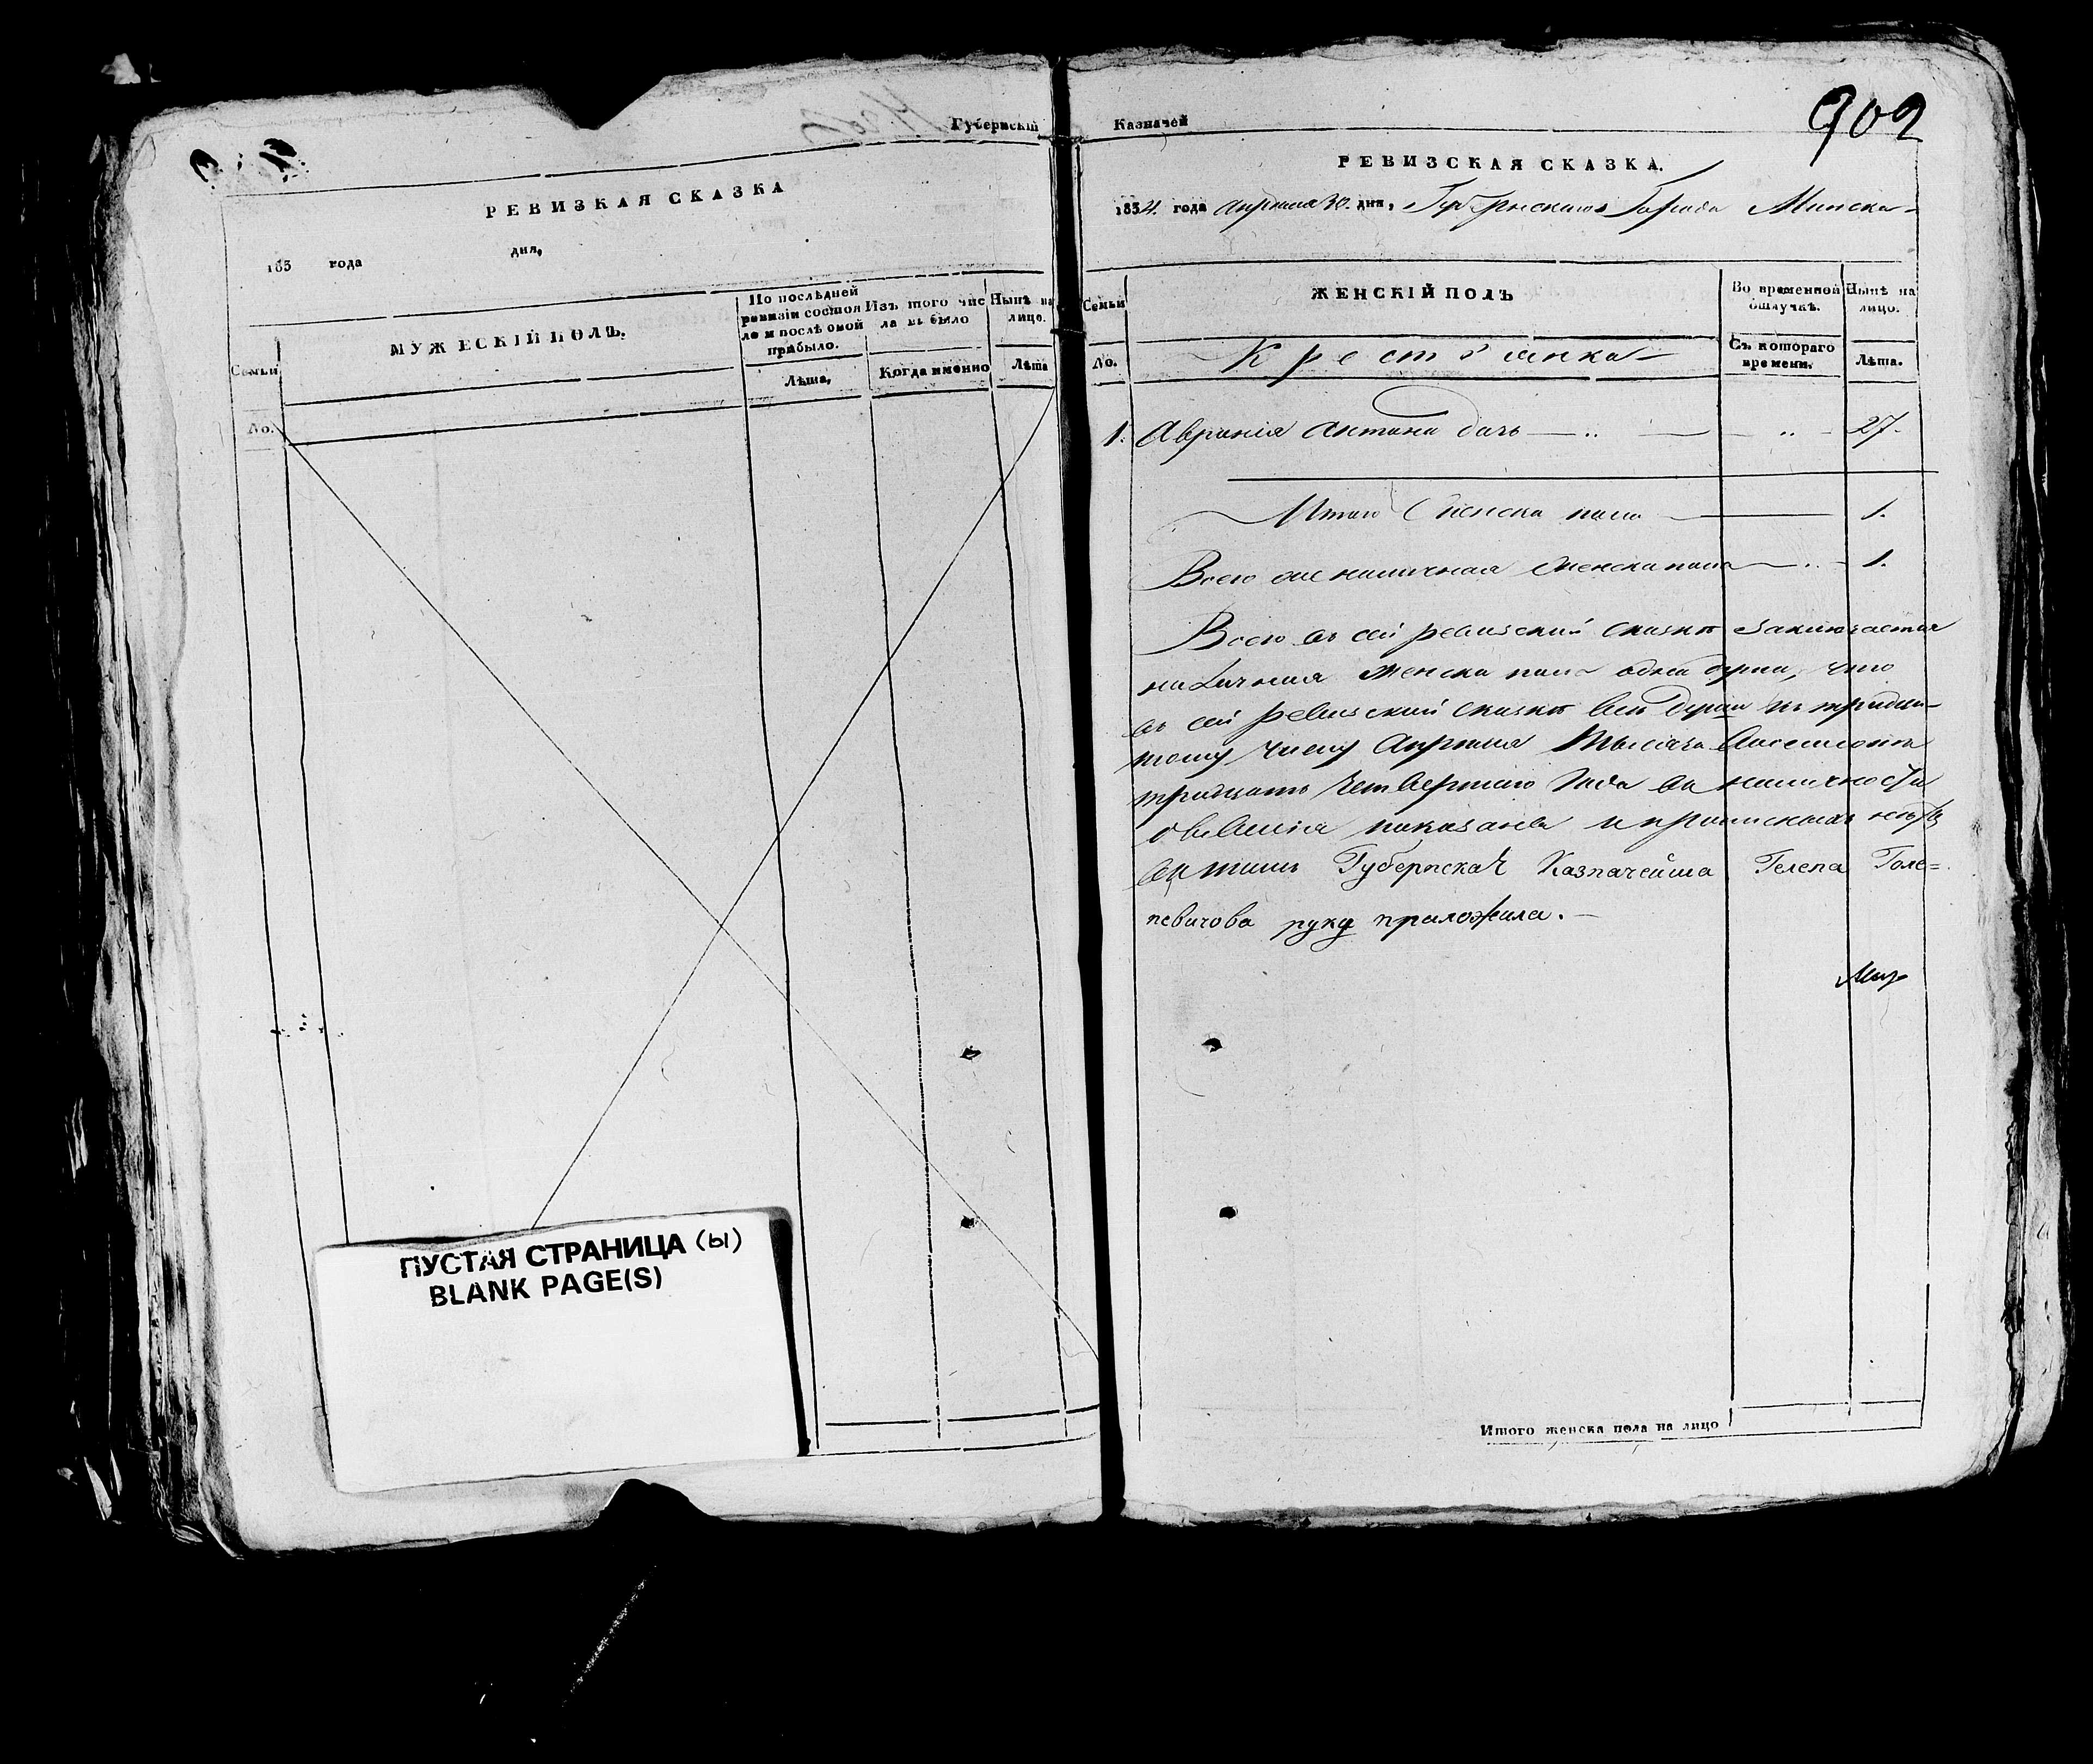 Губернскій Казначей
902
РЕВИЗКАЯ СКАЗКА
183 года дня,
Семьи
No.
МУЖЕСКІЙ ПОЛЪ.
По послѣдней
ревизіи состоя
ло и послѣ оной
прибыло.
Лѣта,
Изъ того чис
ла въ было
Когда именно
Нынѣ на
лицо.
Лѣта
ПУСТАЯ СТРАНИЦА (ы)
BLANK PAGE(S)
РЕВИЗСКАЯ СКАЗКА.
1834. года апреля 30. дня, Губернскаго Города Минска
Семьи
No.
ЖЕНСКІЙ ПОЛЪ
Крестьянка
Во временной
отлучкѣ.
Съ котораго
времени.
Нынѣ на
лицо.
Лѣта.
1. Антона дочь 27.
Итого женска пола 1.
Всего же наличная женска пола 1.
Всего въ сей ревизской сказкѣ заключается
наличная женска пола одна душа, что
въ сей ревизской сказкѣ всѣ души къ тридца-
тому числу Апреля тысяча восемьсотъ
тридцать четвертаго года въ наличности
показаны и прописныхъ нѣтъ
въ томъ Губернская Казначейша Гелена Голе=
невичова руку приложила.
Итого женска пола на лицо